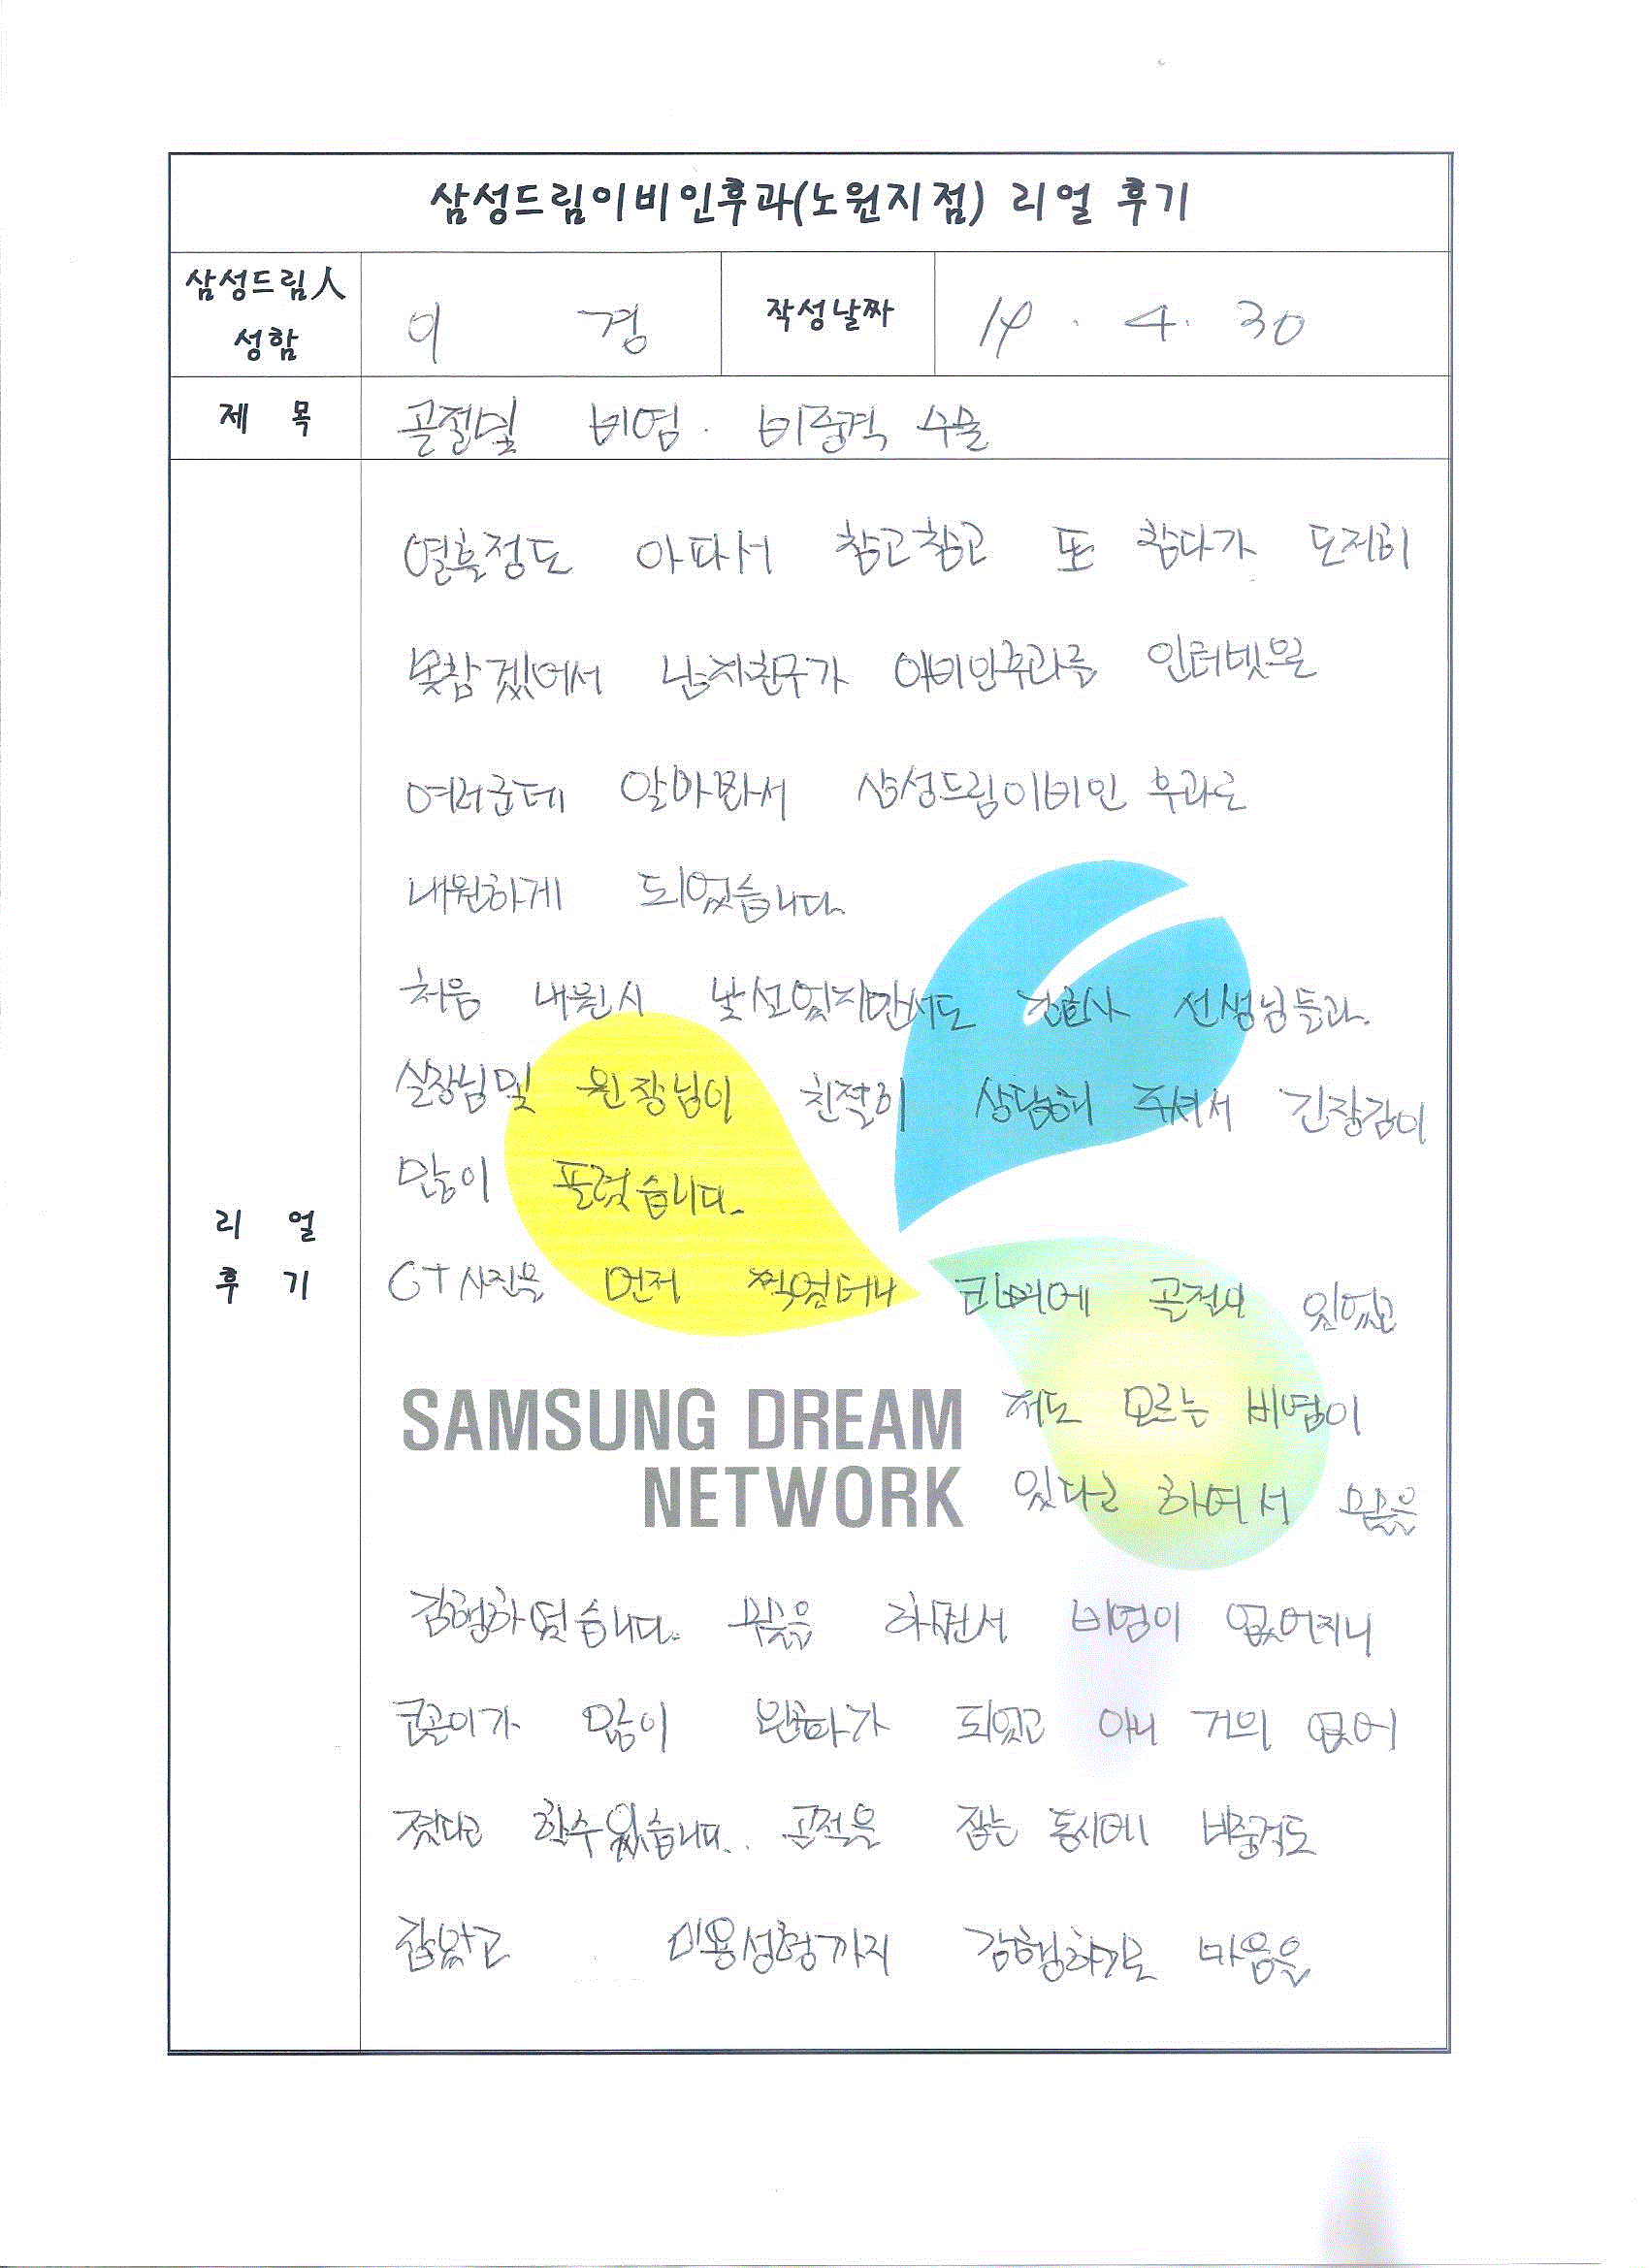 삼성드림이비인후과(노원지점) 리얼 후기
삼성드림人
성함
이 경
작성날짜
14 . 4. 30
제 목
골절및 비염. 비중격 수술
열흘정도 아파서 참고참고 또 참다가 도저히
못참겠어서 남자친구가 이비인후과를 인터넷으로
여러군데 알아봐서 삼성드림이비인 후과로
내원하게 되었습니다.
처음 내원시 낯설었지만서도 간호사 선생님들과.
실장님및 원장님이 친절히 상담해 주셔서 긴장감이
많이 풀렸습니다.
리 얼
후 기
CT사진을 먼저 찍었더니 코뼈에 골절이 있었고
SAMSUNG DREAM
NETWORK
저도 모르는 비염이
있다고 하여서 수술을
감행하였습니다. 수술을 하면서 비염이 없어지니
코골이가 많이 완화가 되었고 아니 거의 없어
졌다고 할수있습니다.. 골절을 잡는 동시에 비중격도
잡았고 미용성형까지 감행하기로 마음을